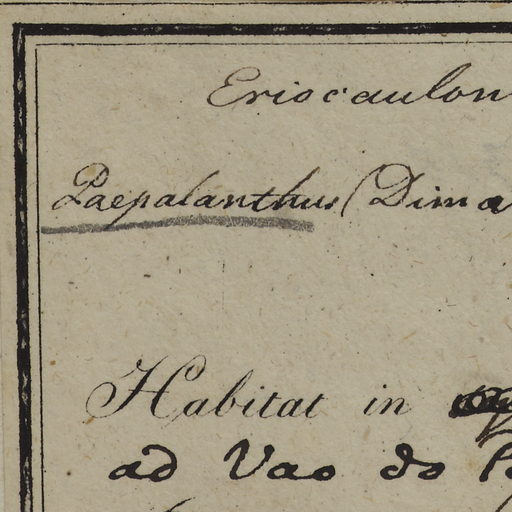 Eriocaulon
Paepalanthus (Dima
Habitat in
ad Vao do